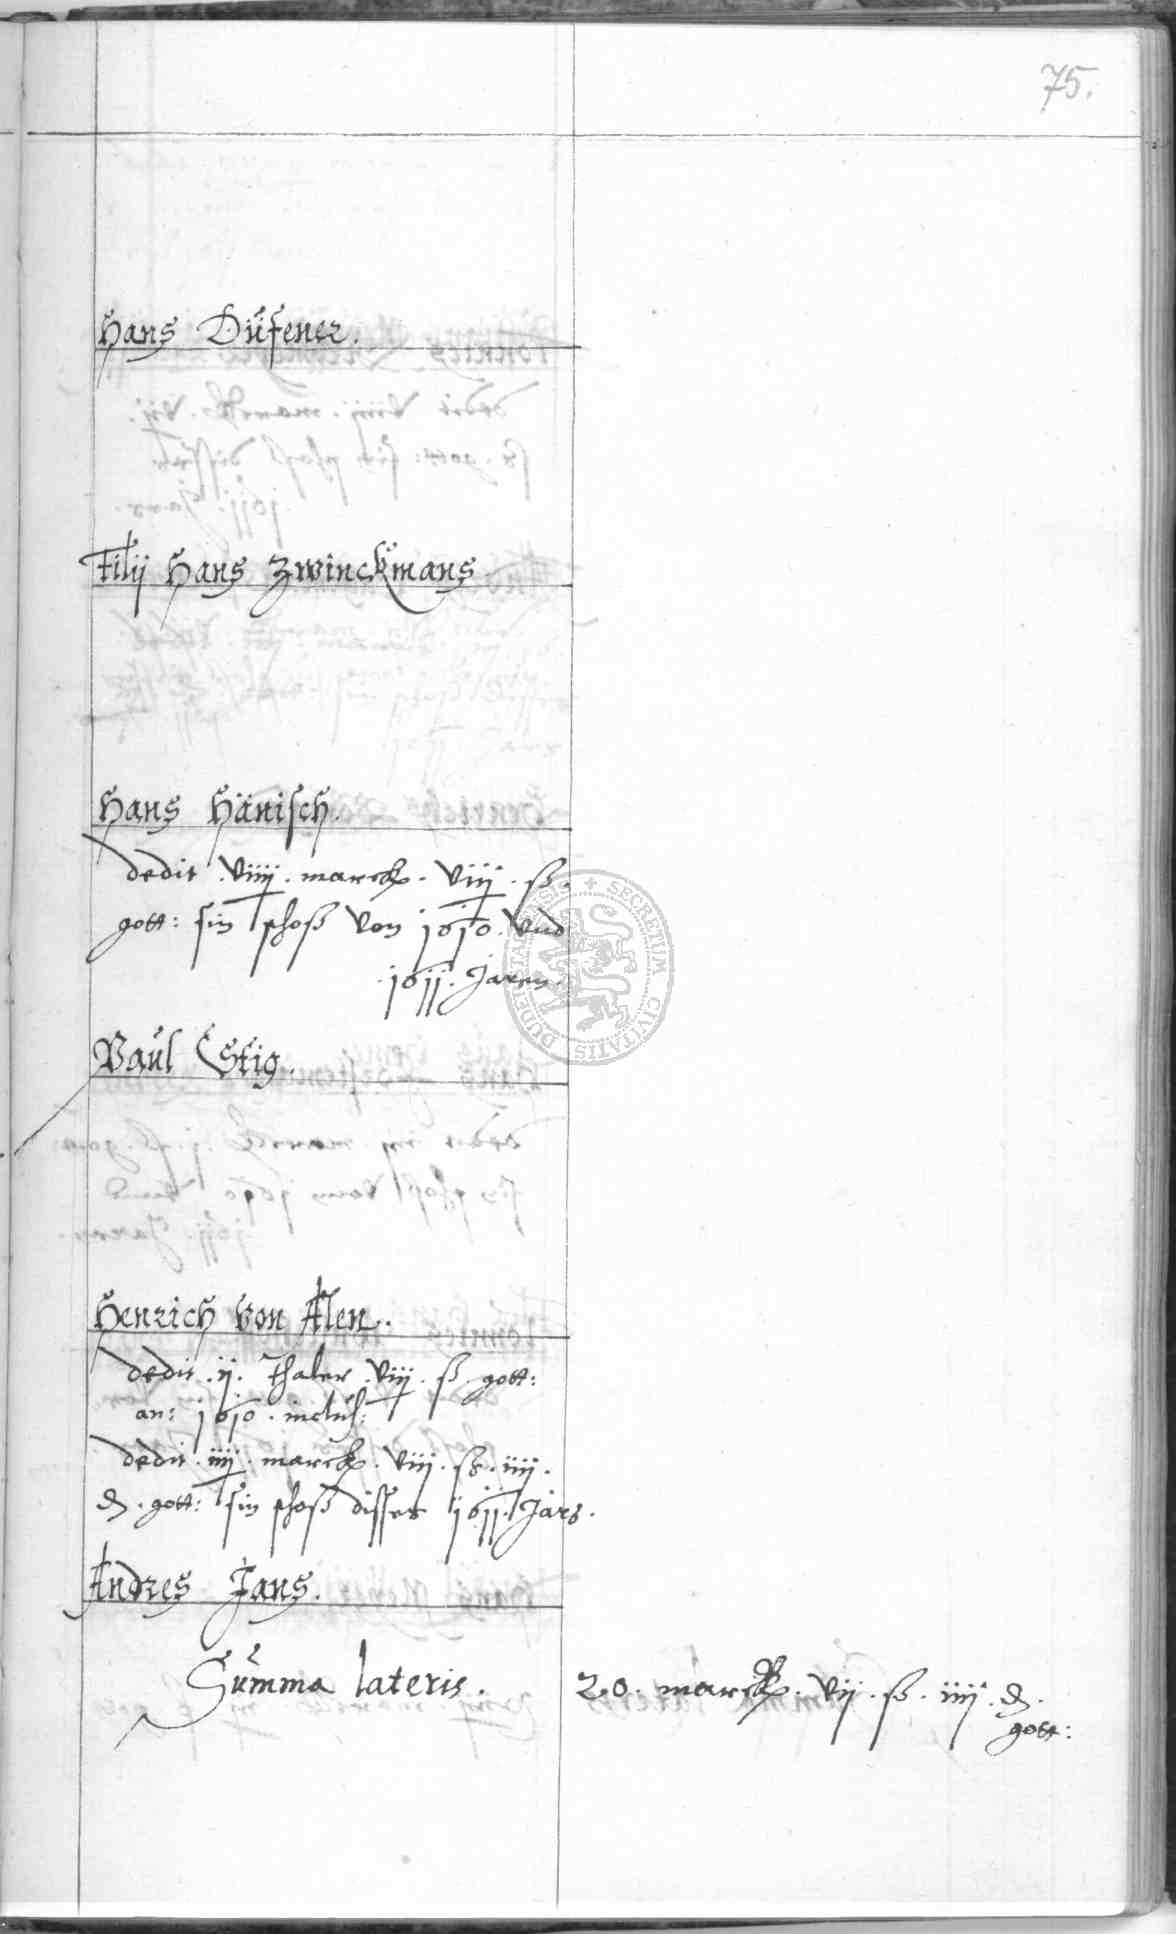 75.
Hans Düfener.
Filij Hans Zwinckmans
Hans Hänisch.
dedit . viiij . marck . viiij . ß .
gott: sin schoß von 1610 . vnd
. 1611 . Jaren .
Paül Estig.
Henrich von Alen.
dedit . ij . Thaler . viij . ß gott:
an: 1610 . inclus:
dedit . iiij . marck . viij . ß . iiij .
₰ . gott: sin schoß disses 1611 . Jars .
Andres Jans.
Summa lateris . 20 . marck . vij . ß . iiij . ₰ .
gott:
SECRETUM CIVITATIS